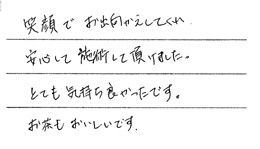 笑顔でお出向かえしてくれ、
安心して施術して頂けました。
とても気持ち良かったです。
お茶もおいしいです。